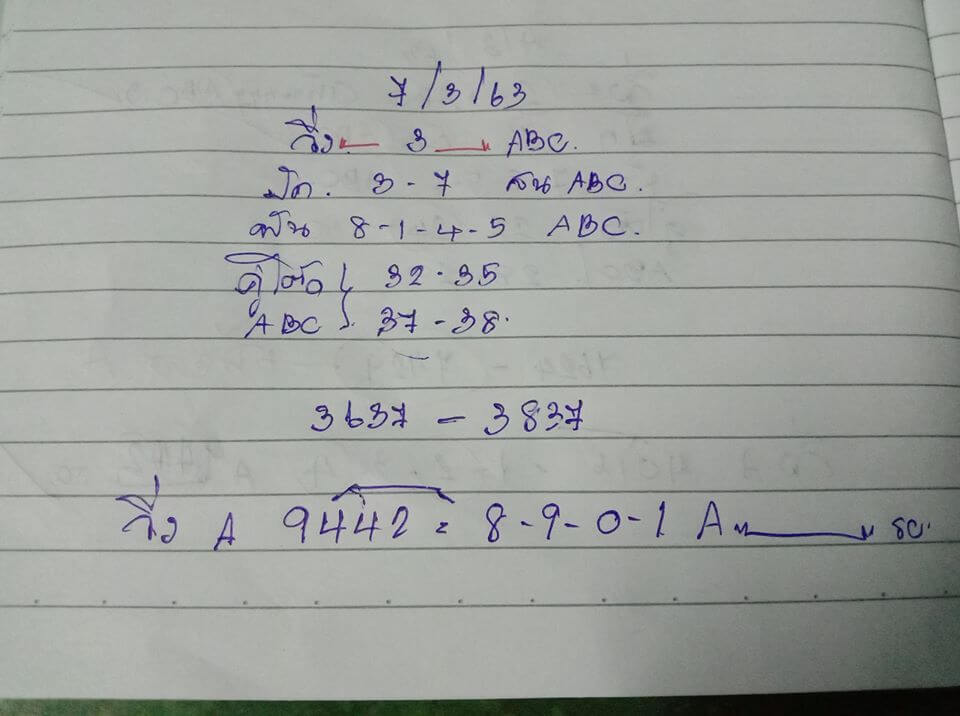 7/3/63
วิ่ง ← 3 → ABC.
ปัก. 3-7 บน ABC.
ฟัน 8-1-4-5 ABC.
คู่โต๊ด } 32.35
ABC } 37-38.
3637 - 3837
วิ่ง A 9442 = 8-9-0-1 A